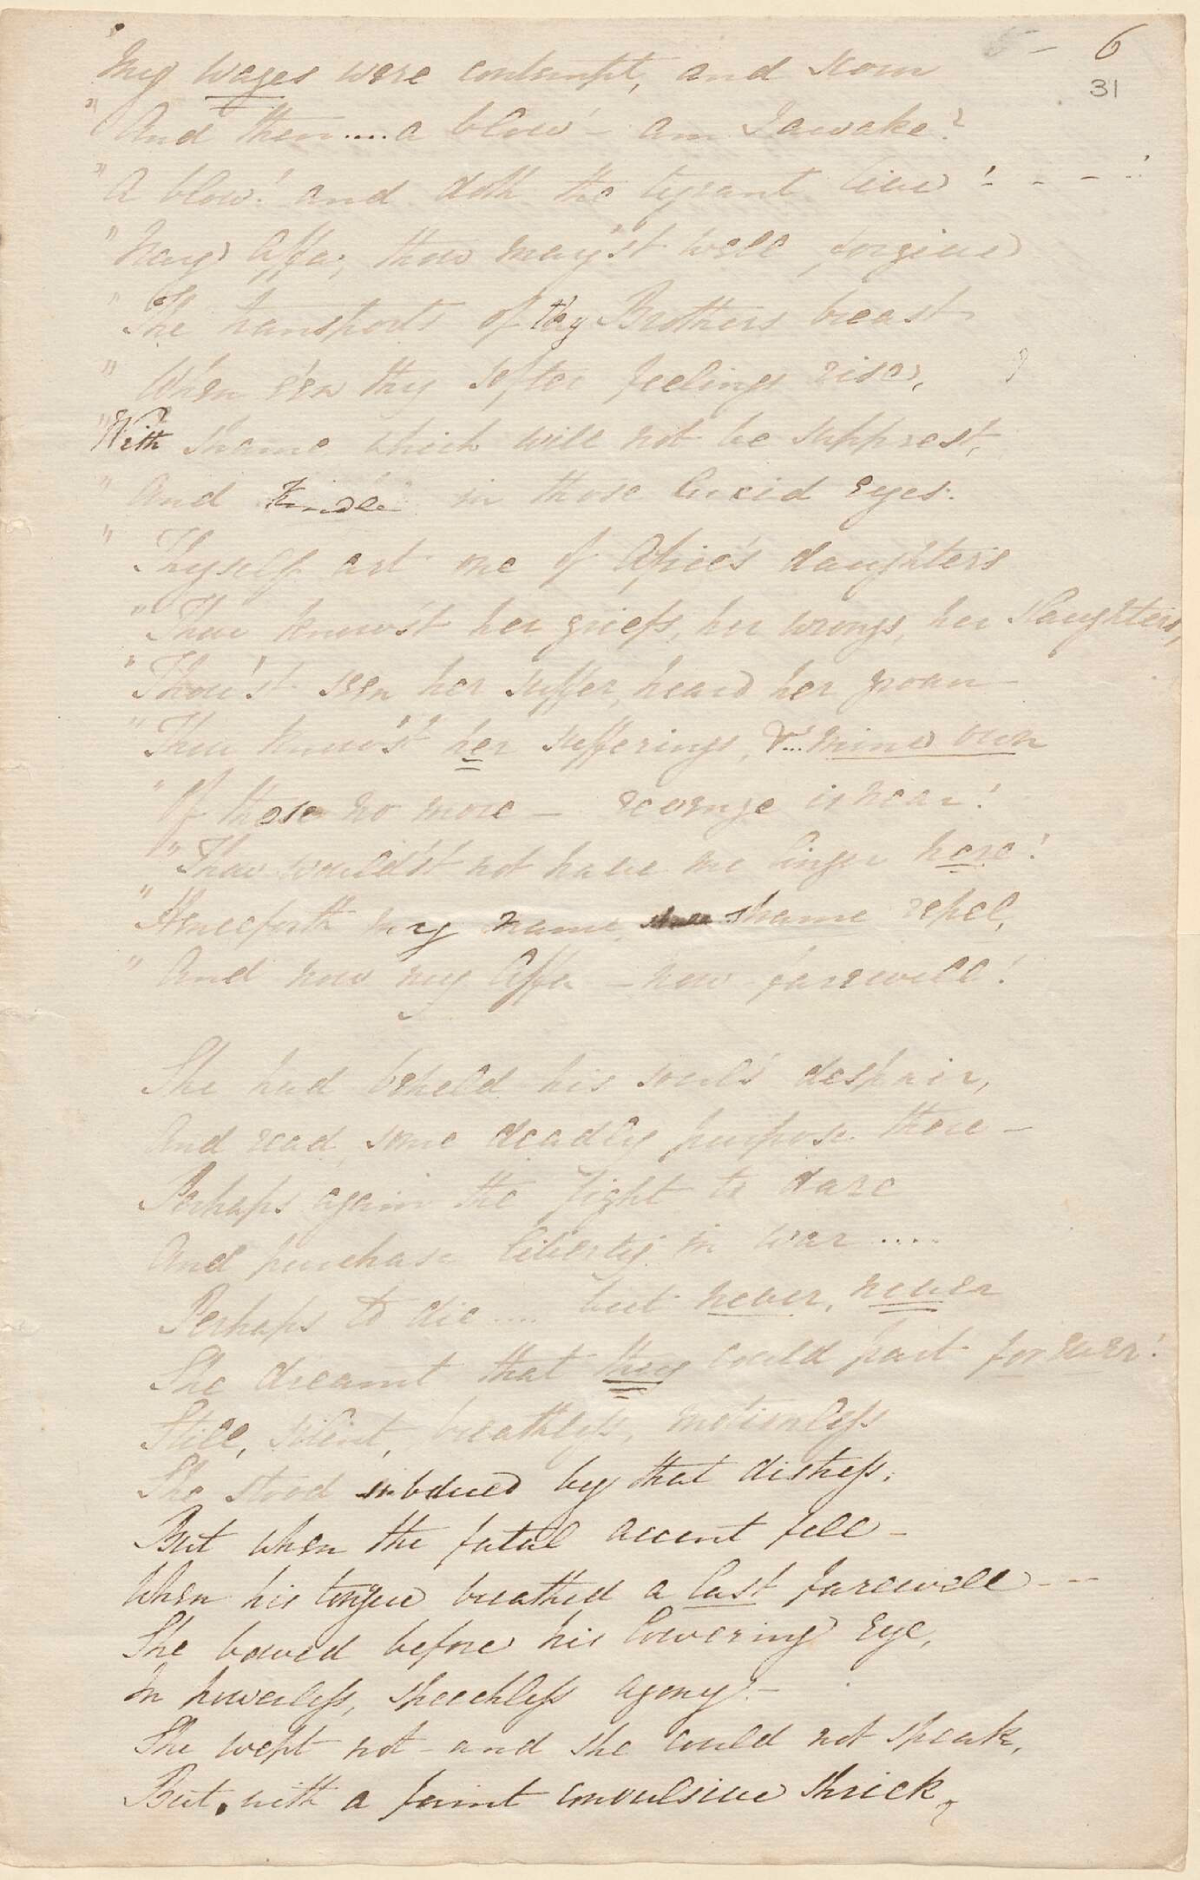 5 - 6
31
"My wages were contempt, and scorn
"And then .... a blow - am I awake?
"A blow! and doth the tyrant live! - - - !
"Nay Affa, thou may'st well forgive
"The transports of thy Brothers breast
"When e'en thy softer feelings rise,
"With shame which will not be supprest,
"And kindle in those lucid eyes.
"Thyself art one of Afric's daughters
"Thou know'st her griefs, her wrongs, her slaughters,
"Thou'st seen her suffer, heard her groan -
"Thou know'st her sufferings, & ... mine own
"Of these no more - revenge is near!
"Thou would'st not have me linger here!
"Henceforth my name, shame repel,
"And now my Affa - now farewell!
She had beheld his soul's despair,
And read some deadly purpose there -
Perhaps again the fight to dare
And purchase liberty in war ....
Perhaps to die .... but never, never
She dreamt that they could part for ever!
Still, silent, breathless, motionless
She stood subdued by that distress.
But when the fatal accent fell -
When his tongue breathed a last farewell - - -
She bowed before his lowering eye,
In powerless, speechless agony. -
She wept not - and she could not speak,
But, with a faint convulsive shriek,